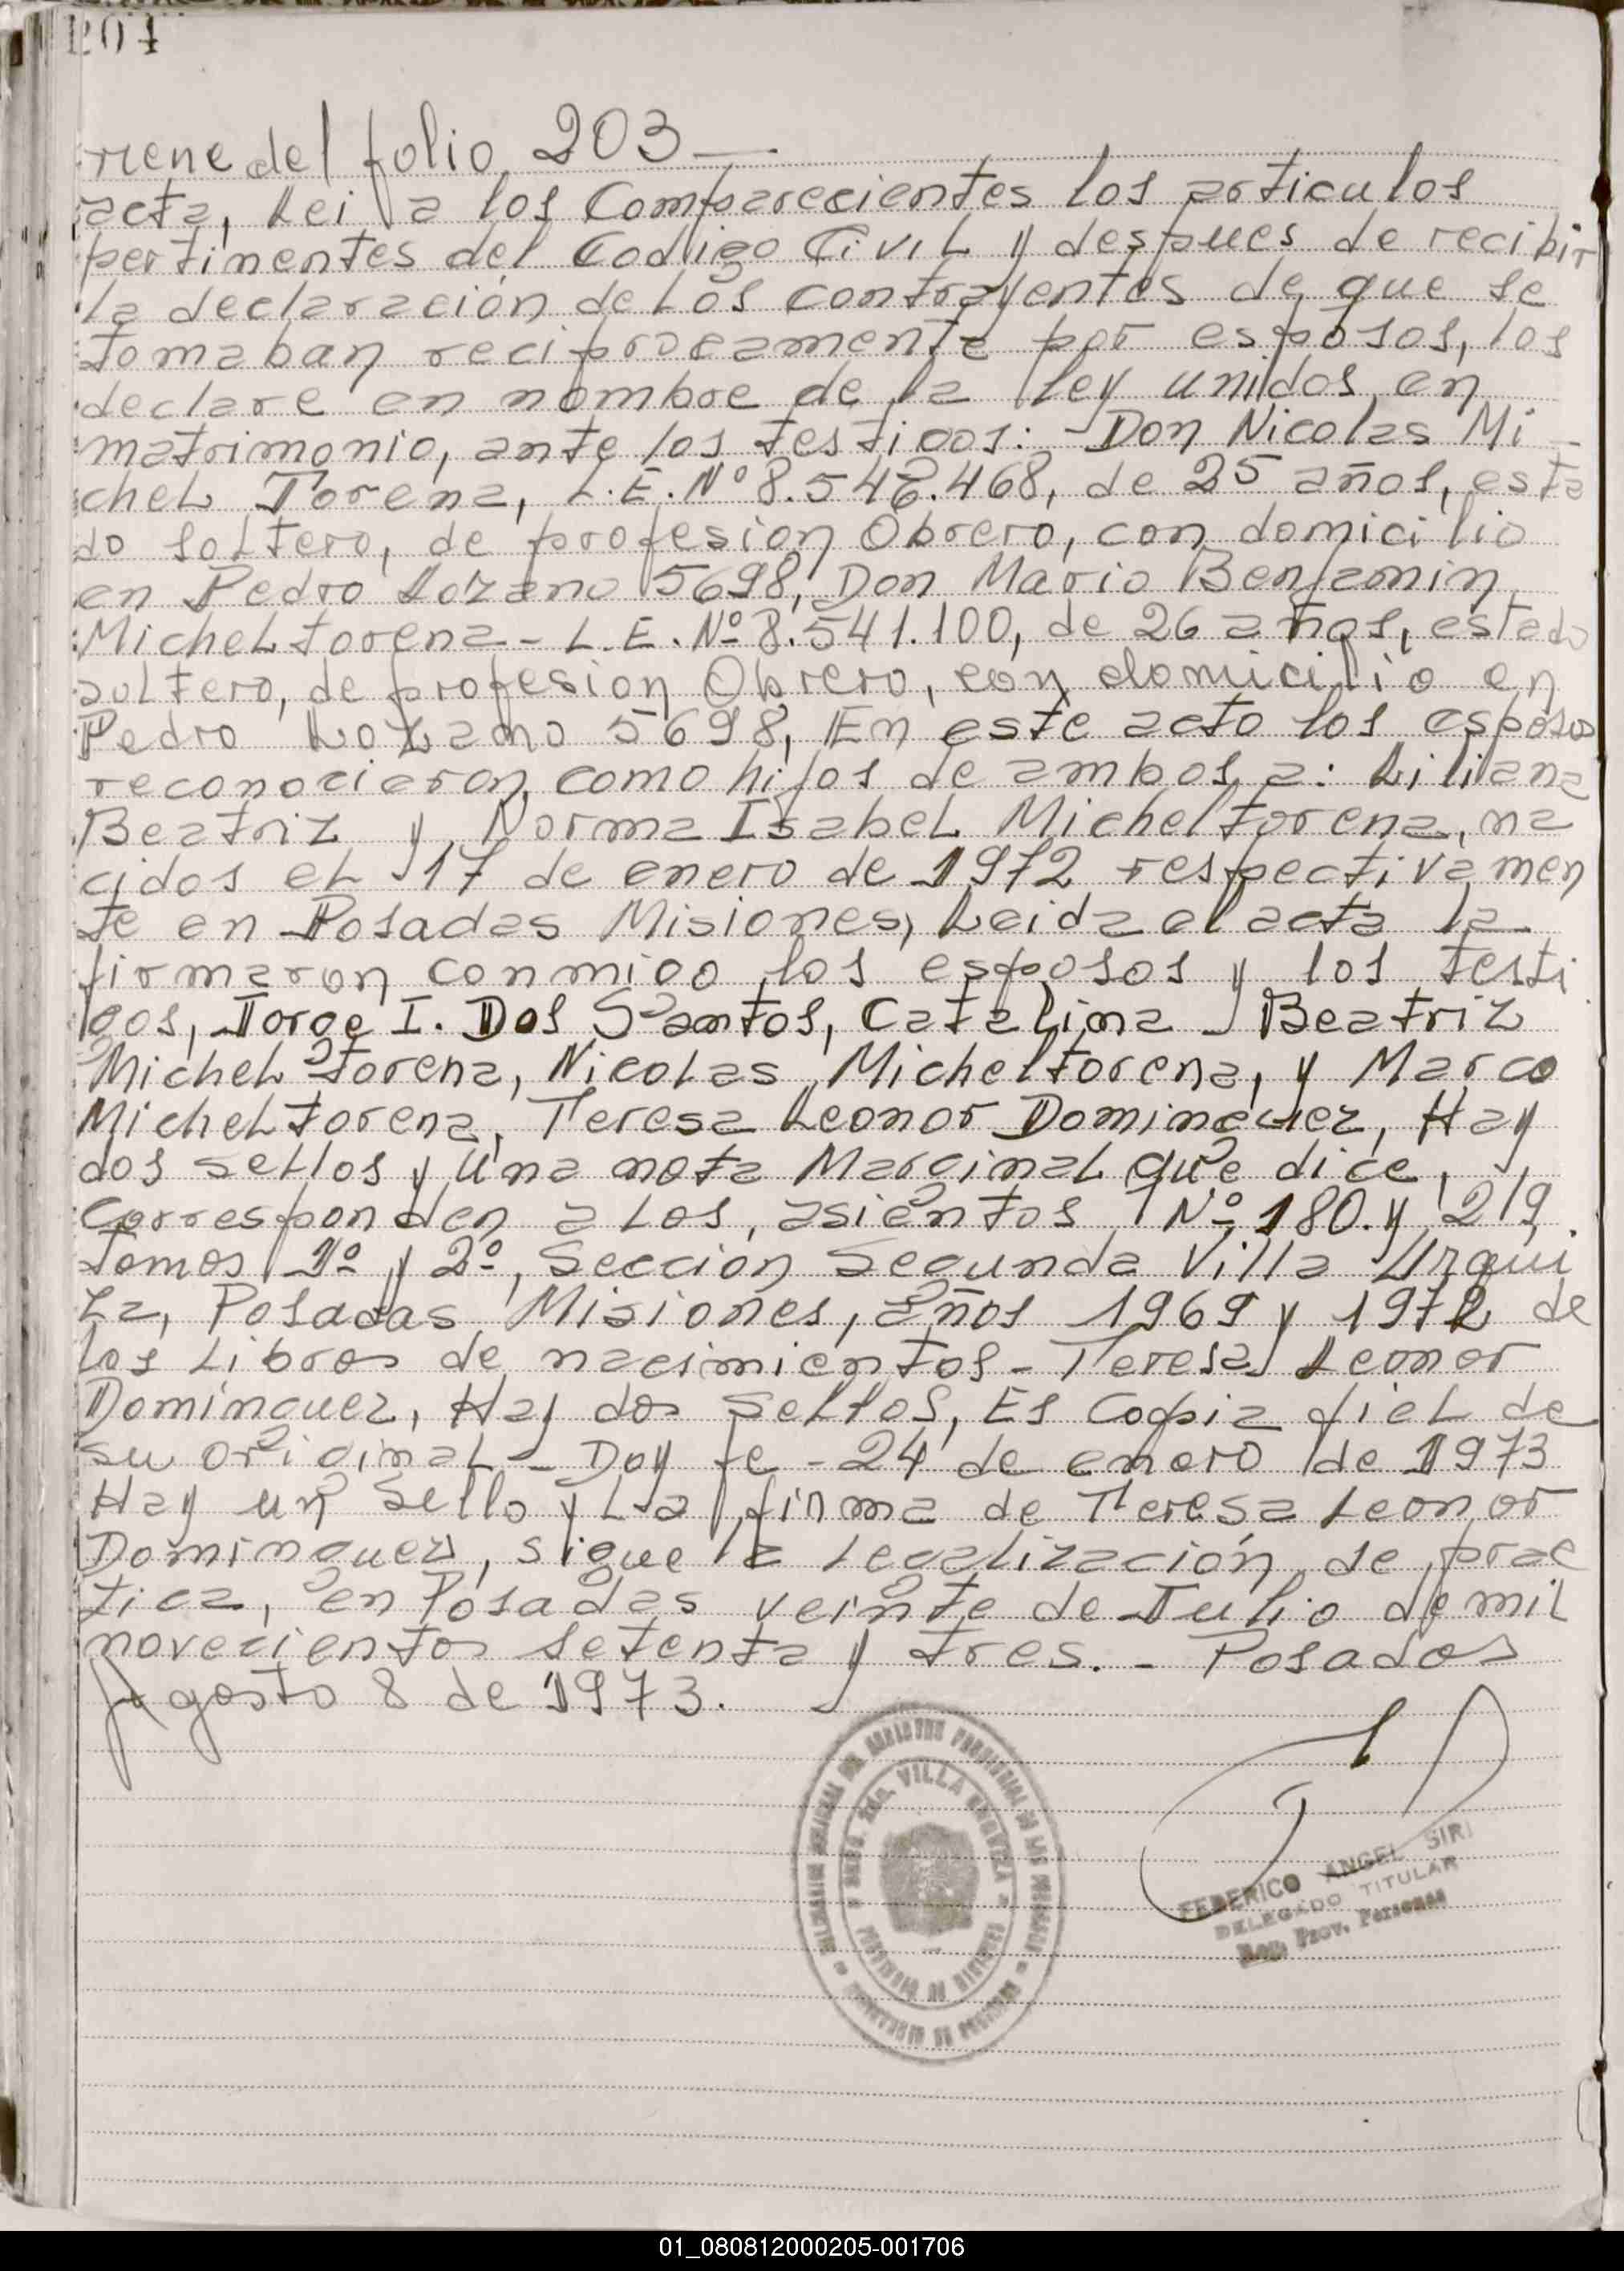 204
viene del folio 203 —
acta, Lei a los Comparecientes los articulos
pertinentes del Codigo Civil y despues de recibir
la declaración de los contrayentes de que se
tomaban reciprocamente por esposos, los
declare en nombre de la ley unidos en
matrimonio, ante los testigos: Don Nicolas Mi-
chel Torena, L.E. Nº 8.548.468, de 25 años, esta
do soltero, de profesion Obrero, con domicilio
en Pedro Lozano 5698, Don Mario Benjamin
Michel torena - L.E. Nº 8.541.100, de 26 años, estado
soltero, de profesion Obrero, con domicilio en
Pedro Lozano 5698, En este acto los esposos
reconocieron como hijos de ambos a: Liliana
Beatriz y Norma Isabel Micheltorena, na
cidos el 17 de enero de 1972 respectivamen
te en Posadas Misiones, Leida el acta la
firmaron conmigo los esposos y los testi
gos, Jorge I. Dos Santos, Catalina Beatriz
Michel torena, Nicolas Micheltorena, y Marco
Michel torena, Teresa Leonor Dominguez, Hay
dos sellos y una nota Marginal que dice,
Corresponden a los, asientos Nº 180. y 219.
tomos 1º y 2º, Seccion Segunda Villa Urqui
za, Posadas Misiones, años 1969 y 1972 de
los Libros de nacimientos - Teresa Leonor
Dominguez, Hay dos Sellos, Es Copia fiel de
su original - Doy fe - 24 de enero de 1973
Hay un Sello y La firma de Teresa Leonor
Dominguez, sigue la legalización de prac
tica, en Posadas veinte de Julio de mil
novecientos setenta y tres. - Posadas
Agosto 8 de 1973.
VILLA URQUIZA
FEDERICO ANGEL SIRI
DELEGADO TITULAR
Reg. Prov. Personas
01_080812000205-001706